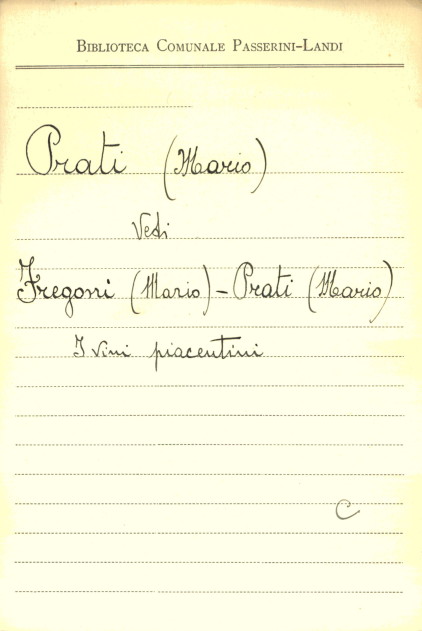 BIBLIOTECA COMUNALE PASSERINI-LANDI
Prati (Mario)
Vedi
Fregoni (Mario) - Prati (Mario)
I vini piacentini
C